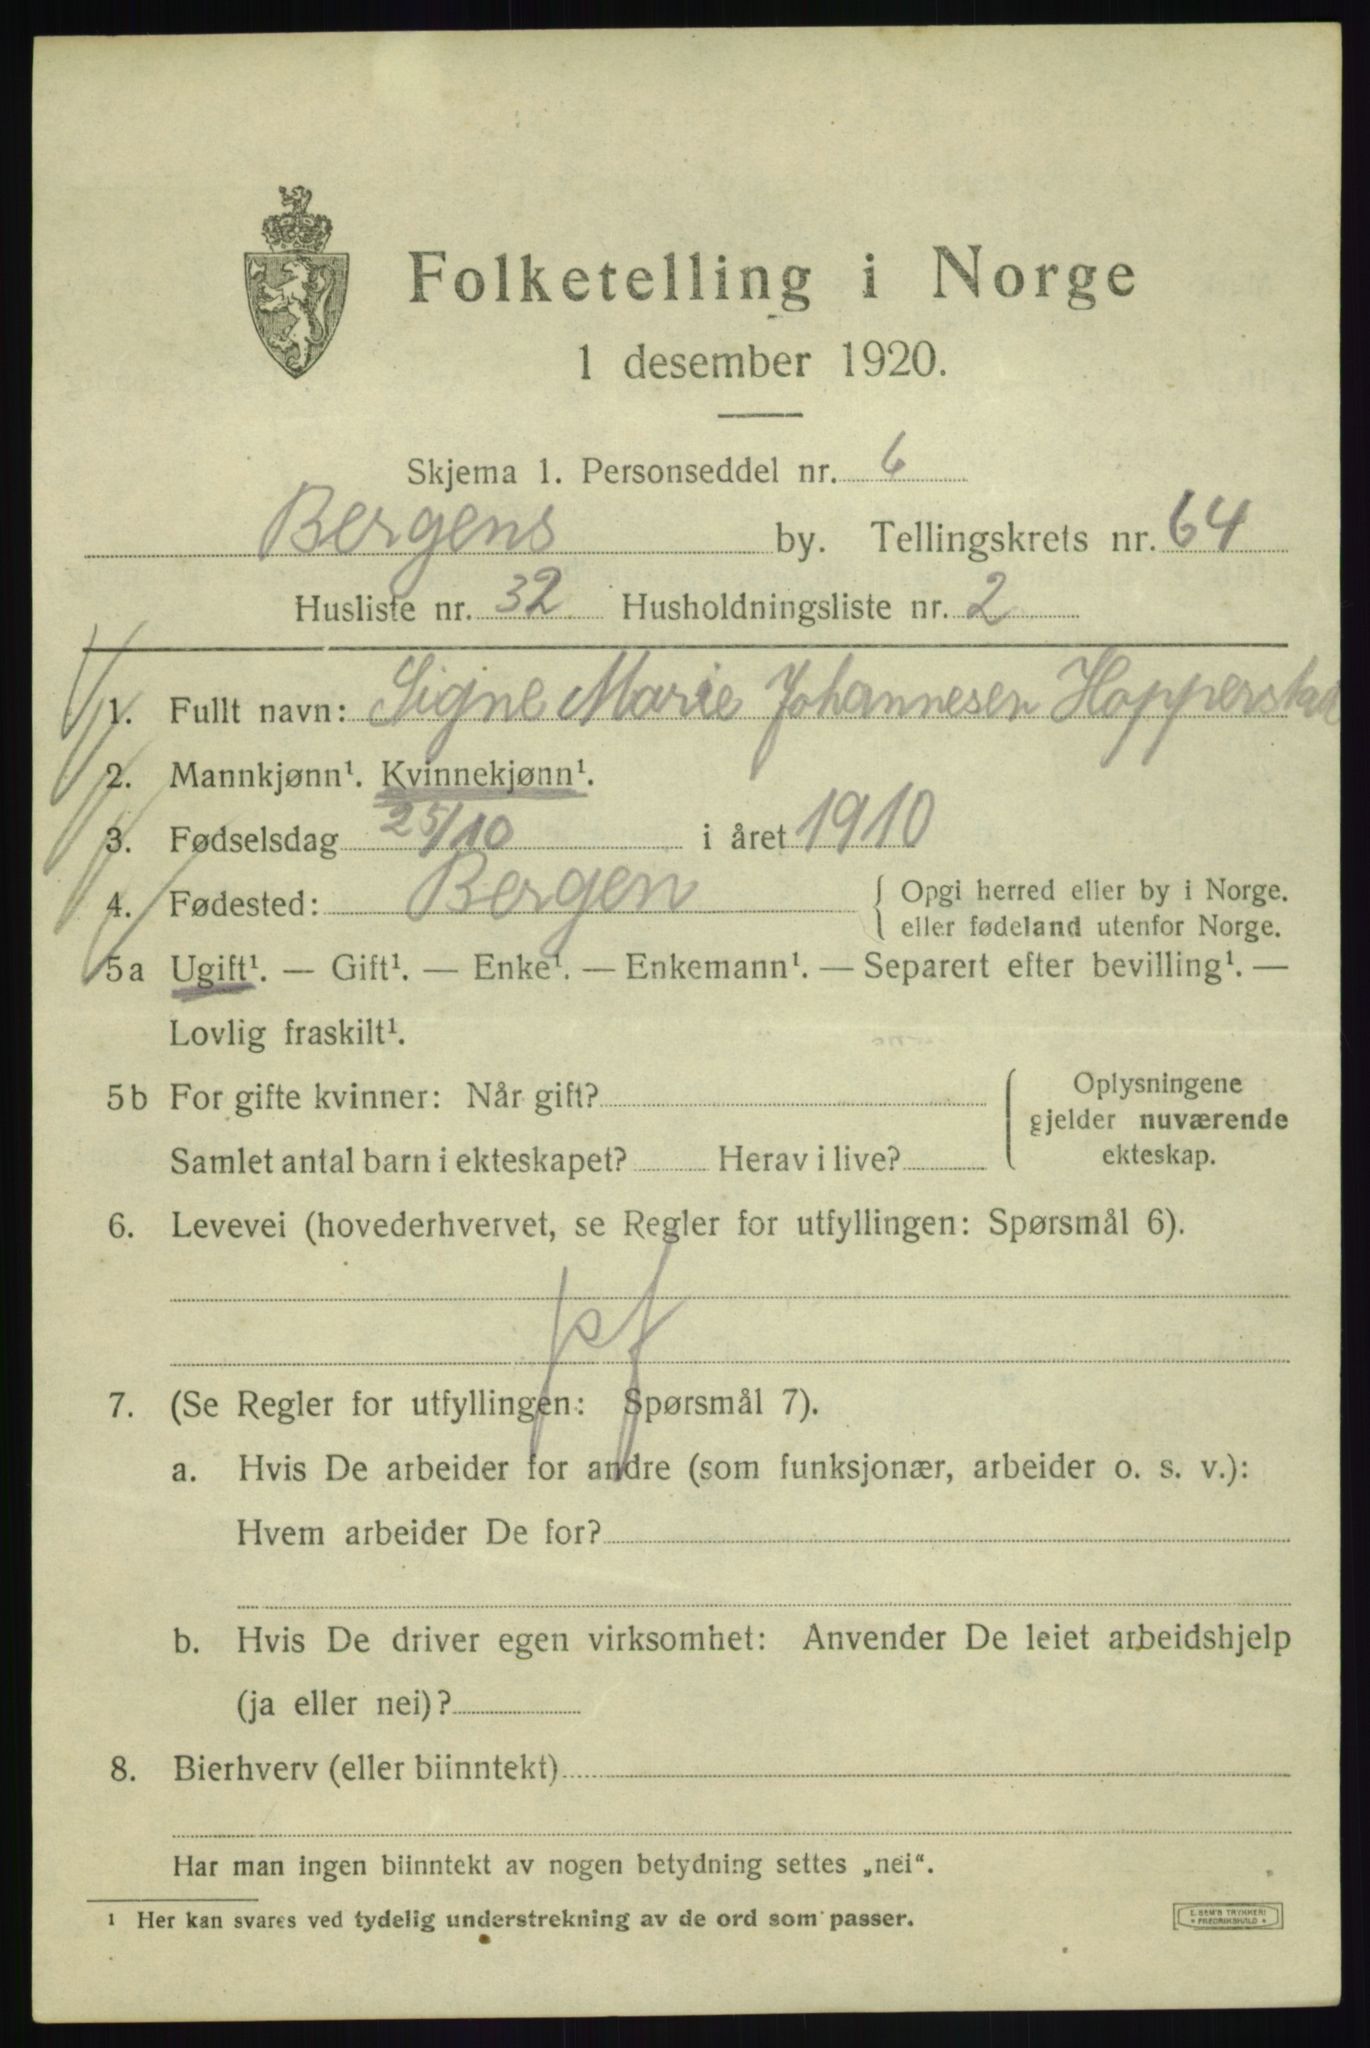 Folketelling i Norge
1 desember 1920.
Skjema 1. Personseddel nr. 6
Bergens by. Tellingskrets nr. 64
Husliste nr. 32 Husholdningsliste nr. 2
1. Fullt navn: Signe Marie Johannesen Hopperstad
2. Mannkjønn¹. Kvinnekjønn¹.
3. Fødselsdag 25/10 i året 1910
4. Fødested: Bergen { Opgi herred eller by i Norge.
eller fødeland utenfor Norge.
5a Ugift¹. — Gift¹. — Enke¹. — Enkemann¹. — Separert efter bevilling¹. —
Lovlig fraskilt¹.
5b For gifte kvinner: Når gift?
Samlet antal barn i ekteskapet? Herav i live?
Oplysningene
gjelder nuværende
ekteskap.
6. Levevei (hovederhvervet, se Regler for utfyllingen: Spørsmål 6).
pf
7. (Se Regler for utfyllingen: Spørsmål 7).
a. Hvis De arbeider for andre (som funksjonær, arbeider o. s. v.):
Hvem arbeider De for?
b. Hvis De driver egen virksomhet: Anvender De leiet arbeidshjelp
(ja eller nei)?
8. Bierhverv (eller biinntekt)
Har man ingen biinntekt av nogen betydning settes „nei“.
¹ Her kan svares ved tydelig understrekning av de ord som passer.
E. SEM'S TRYKKERI
FREDRIKSHALD